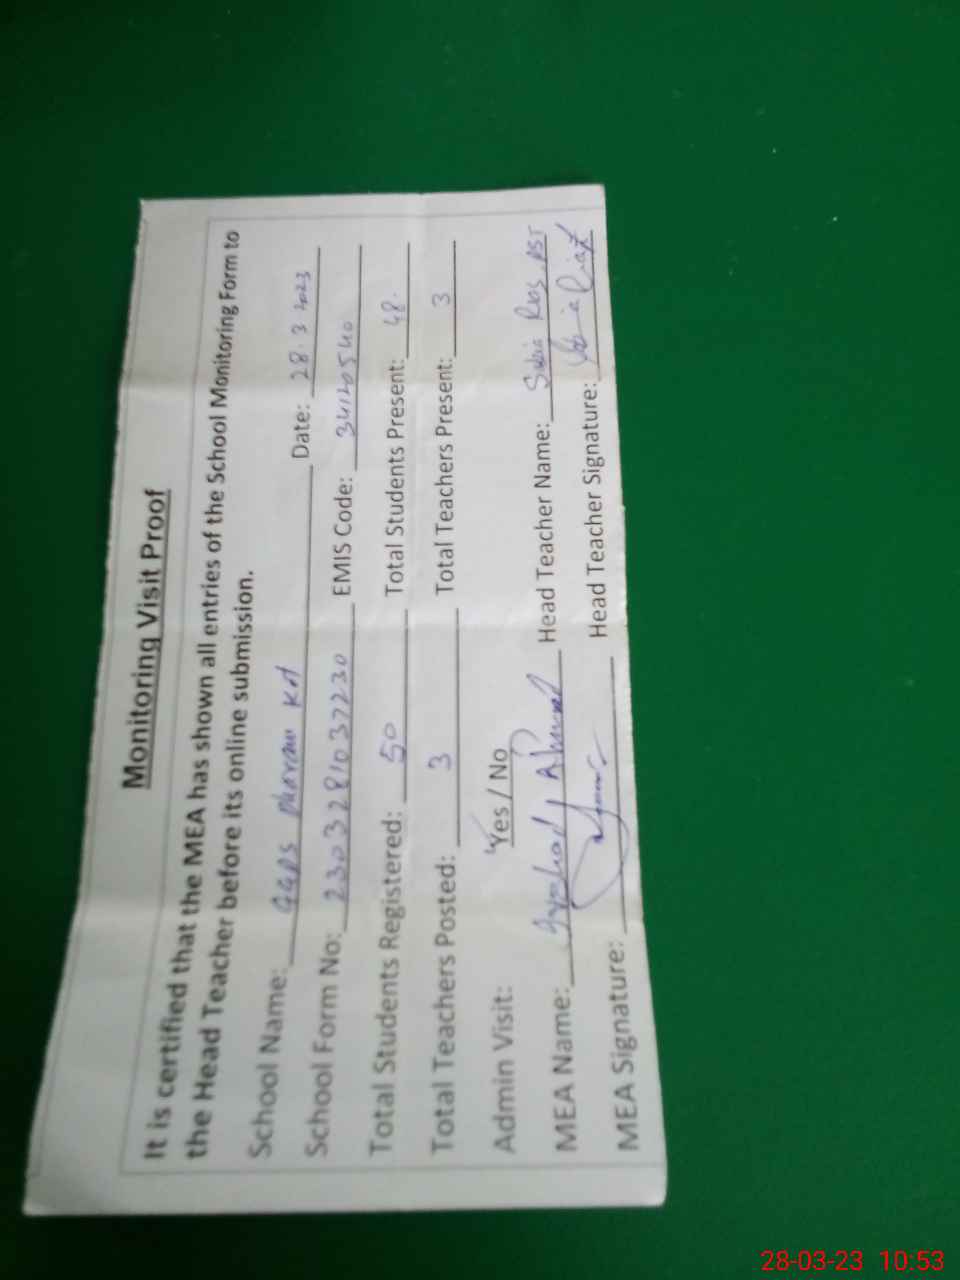 Monitoring Visit Proof
It is certified that the MEA has shown all entries of the School Monitoring Form to
the Head Teacher before its online submission.
School Name: GGPS Kot Date: 28.3 2023
School Form No: 230328103723 0 EMIS Code: 34120540
Total Students Registered: 50 Total Students Present: 48.
Total Teachers Posted: 3 Total Teachers Present: 3
Admin Visit: Yes / No
MEA Name: Ahmad Head Teacher Name: PST
MEA Signature: Head Teacher Signature:
28-03-23 10:53